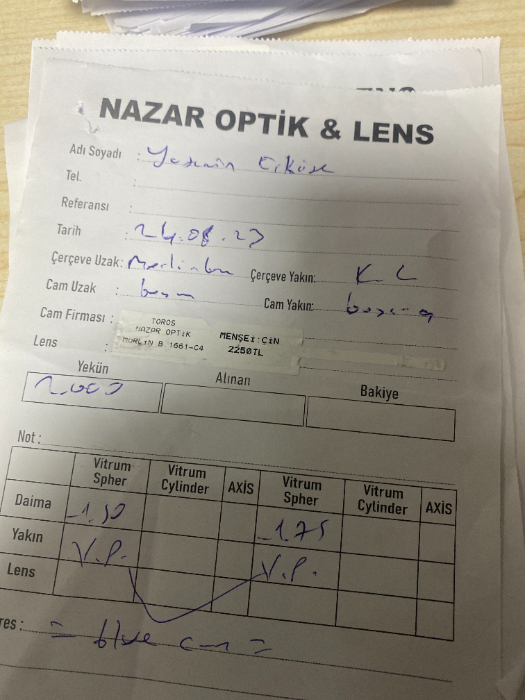 NAZAR OPTİK & LENS
Adı Soyadı : Yasemin
Tel. :
Referansı :
Tarih : 24.08.23
Çerçeve Uzak: Çerçeve Yakın:
Cam Uzak : Cam Yakın:
Cam Firması :
TOROS
NAZAR OPTİK MENŞEİ:ÇİN
MORLİN B 1661-C4 2250TL
Lens :
Yekün Alınan Bakiye
2.000
Not :
Vitrum Spher Vitrum Cylinder AXİS Vitrum Spher Vitrum Cylinder AXİS
Daima -1.50 -1.75
Yakın V.P. V.P.
Lens
res : = blue cam =